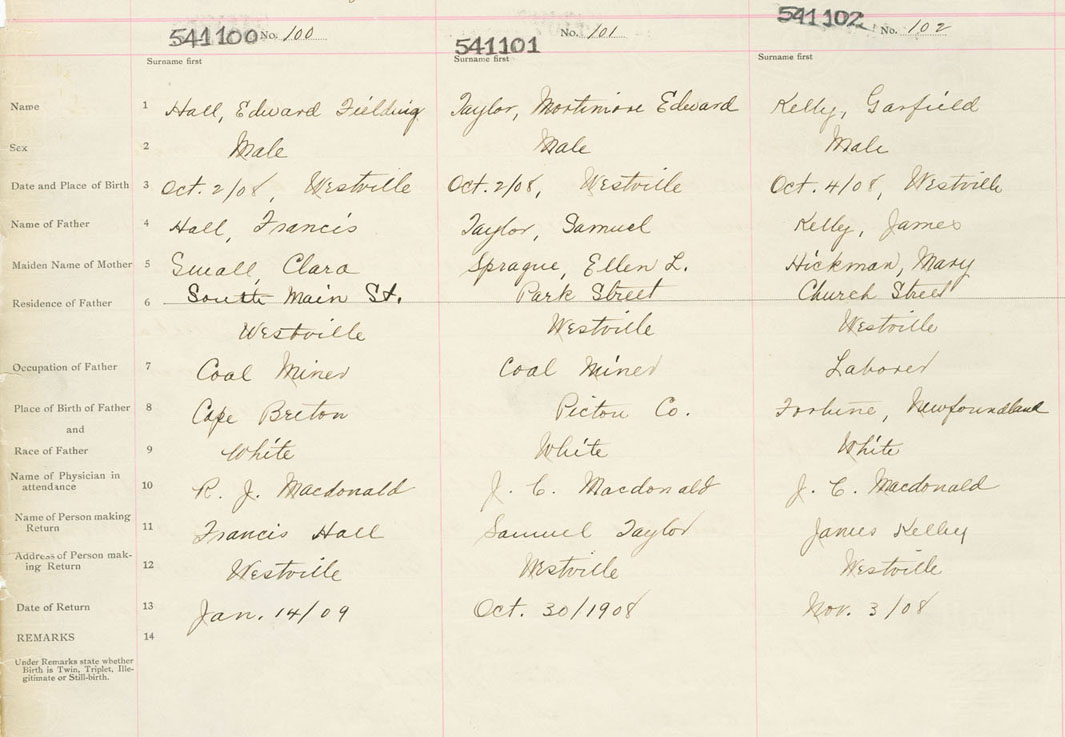 541100 No. 100 541101 No. 101 541102 No. 102
Surname first Surname first Surname first
Name 1 Hall, Edward Fielding Taylor, Mortimore Edward Kelly, Garfield
Sex 2 Male Male Male
Date and Place of Birth 3 Oct. 2/08, Westville Oct. 2/08, Westville Oct. 4/08, Westville
Name of Father 4 Hall, Francis Taylor, Samuel Kelly, James
Maiden Name of Mother 5 Small, Clara Sprague, Ellen L. Hickman, Mary
Residence of Father 6 South Main St. Park Street Church Street
Westville Westville Westville
Occupation of Father 7 Coal Miner Coal Miner Laborer
Place of Birth of Father 8 Cape Breton Pictou Co. Fortune, Newfoundland
and
Race of Father 9 White White White
Name of Physician in
attendance 10 R. J. Macdonald J. C. Macdonald J. C. Macdonald
Name of Person making
Return 11 Francis Hall Samuel Taylor James Kelley
Address of Person mak-
ing Return 12 Westville Westville Westville
Date of Return 13 Jan. 14/09 Oct. 30/1908 Nov. 3/08
REMARKS 14
Under Remarks state whether
Birth is Twin, Triplet, Ille-
gitimate or Still-birth.